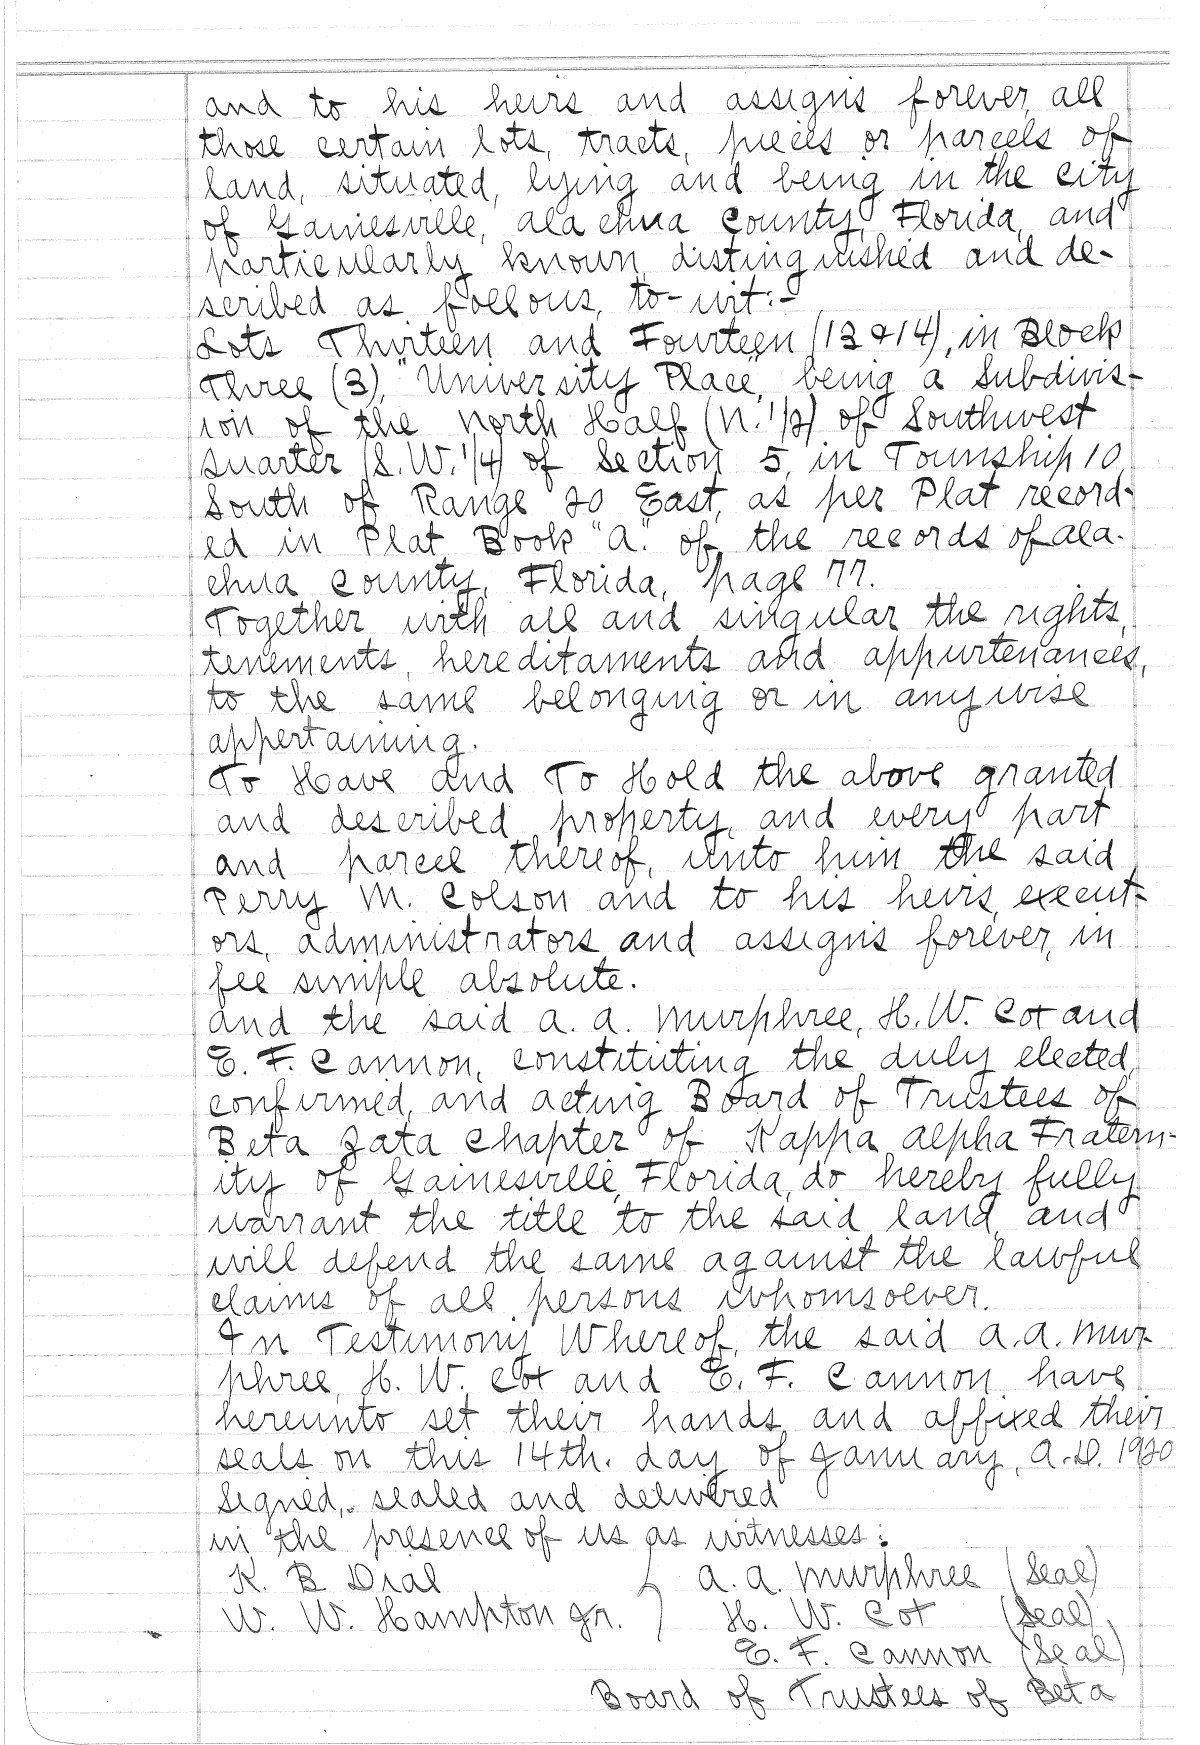 and to his heirs and assigns forever, all
those certain lots, tracts, pieces or parcels of
land, situated, lying and being in the city
of Gainesville, Alachua County, Florida, and
particularly known, distinguished and de-
scribed as follows, to-wit:-
Lots Thirteen and Fourteen (13 & 14), in Block
Three (3), "University Place", being a Subdivis-
ion of the North Half (N. 1/2) of Southwest
quarter (S.W. 1/4) of Section 5, in Township 10,
South of Range 20 East, as per Plat record-
ed in Plat Book "A." of the records of Ala-
chua County, Florida, page 77.
Together with all and singular the rights,
tenements, hereditaments and appurtenances,
to the same belonging or in anywise
appertaining.
To Have and To Hold the above granted
and described property, and every part
and parcel thereof, unto him the said
Perry M. Colson and to his heirs, execut-
ors, administrators and assigns forever, in
fee simple absolute.
And the said A. A. Murphree, H. W. Cox and
E. F. Cannon, constituting the duly elected,
confirmed, and acting Board of Trustees of
Beta Zata Chapter of Kappa Alpha Fratern-
ity of Gainesville, Florida, do hereby fully
warrant the title to the said land, and
will defend the same against the lawful
claims of all persons whomsoever.
In Testimony Whereof, the said A. A. Mur-
phree, H. W. Cox and E. F. Cannon, have
hereunto set their hands and affixed their
seals on this 14th. day of January, A.D. 1920
Signed, sealed and delivered
in the presence of us as witnesses:
K. B Dial A. A. Murphree (Seal)
W. W. Hampton Jr. H. W. Cox (Seal)
E. F. Cannon (Seal)
Board of Trustees of Beta